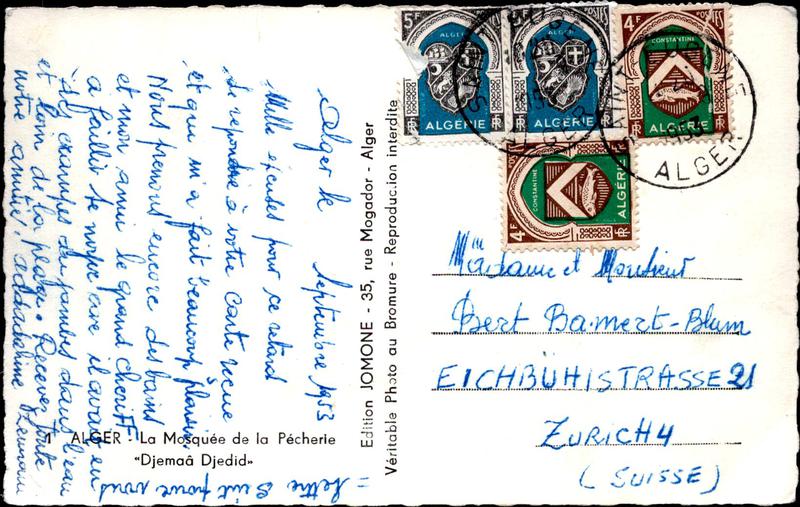 Alger le Septembre 1953
Mille excuses pour ce retard
de repondre à votre carte recue
et qui m'a fait beaucoup plaisir
Nous prenons encore des bains
et mon ami le grand cheriff
a failli se noyer car il avait eu
des crampes aux jambes dans l'eau
et loin de la plage. Recevez toute
notre amitié,
= lettre suit pour vous
1 ALGER - La Mosquée de la Pécherie
«Djemaâ Djedid»
Edition JOMONE - 35, rue Mogador - Alger
Véritable Photo au Bromure - Reproduction interdite
5F
POSTES
ALGER
ALGÉRIE
RF
ALGER
ALGÉRIE
RF
4F
POSTES
CONSTANTINE
ALGÉRIE
RF
4F
POSTES
CONSTANTINE
ALGÉRIE
RF
1953
ALGER
Madame et Monsieur
Bert Bamert-Blum
EICHBÜHLSTRASSE 21
ZURICH 4
(SUISSE)